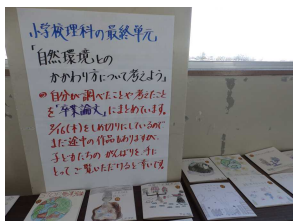 小学校理科の最終単元
「自然環境との
かかわり方について考えよう」
自分が調べたことや考えたこと
を「卒業論文」にまとめています。
2/16(木)をしめ切りにしているので
まだ途中の作品もありますが、
子どもたちの がんばりを 手に
とって ご覧いただけると幸いです。